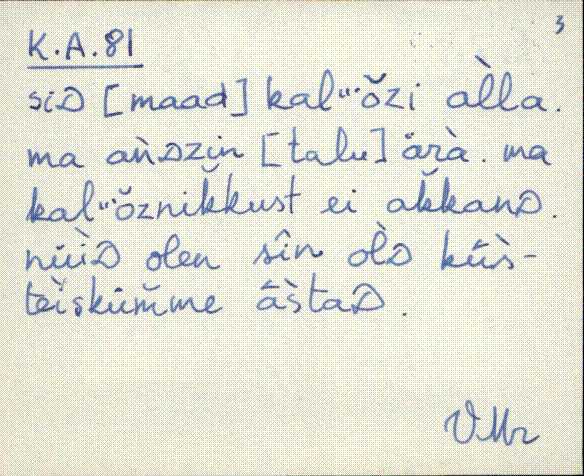 3
K.A.81
siᴅ [maad] kal‴ŏzi àlla.
ma aǹᴅzin [talu] ärà. ma
kal‴ŏznik̆kust ei ak̆kanᴅ.
nüìᴅ olen sîn olᴅ̀ kūs̀-
teìsküm̆me ās̀taᴅ.
VMr